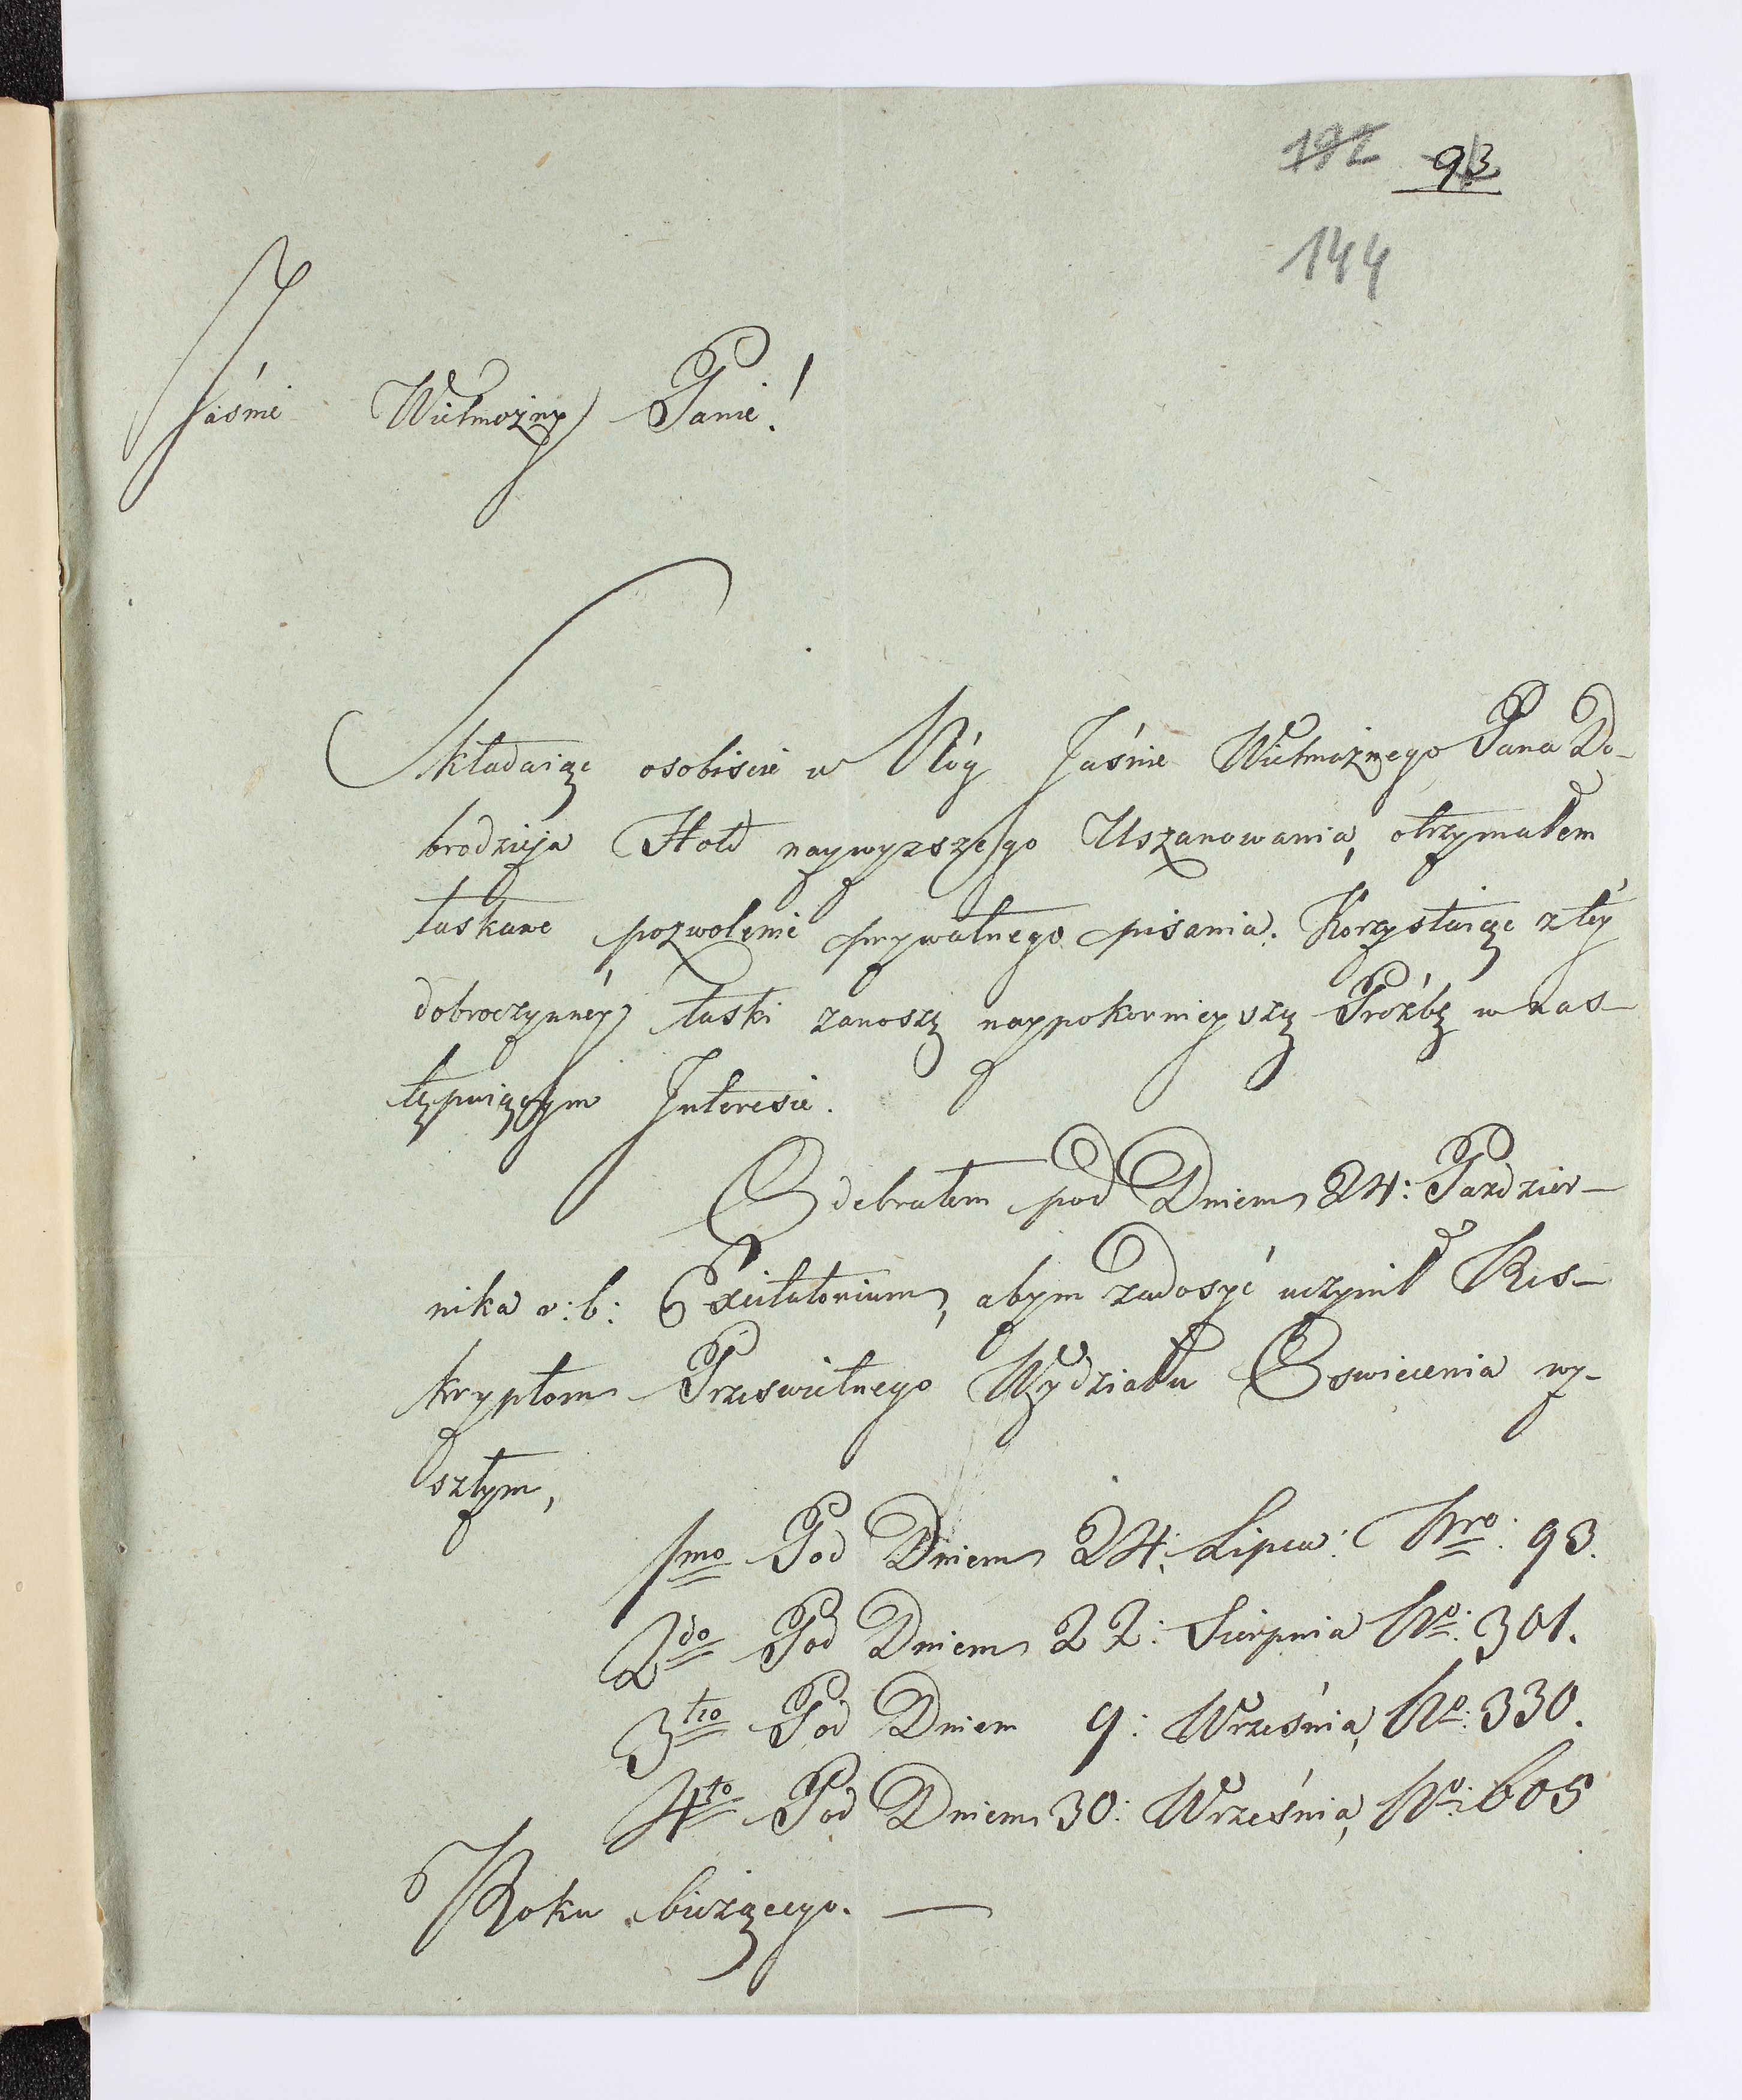 192 93
144
Jaśnie Wielmożny Panie!
Składaiąc osobiscie u Nóg Jaśnie Wielmożnego Pana Do-
brodzieja Hołd naywyzszego Uszanowania, otrzymałem
łaskawe pozwolenie prywatnego pisania. Korzystaiąc z téy
dobroczynnéy łaski zanoszę naypokornieyszą Prozbę w nas-
tępuiącym Interesie.
Odebrałem pod Dniem 24: Pazdzier-
nika r: b: Excitatorium, abym zadosyć uczynił Res-
kryptom Prześwietnego Wydziału Oswiecenia wy-
szłym,
1mo Pod Dniem 24: Lipca: Nro: 93.
2do Pod Dniem 22: Sierpnia No: 301.
3tio Pod Dniem 9: Września, No: 330.
4to Pod Dniem 30: Września, No: 605
Roku bieżącego. —